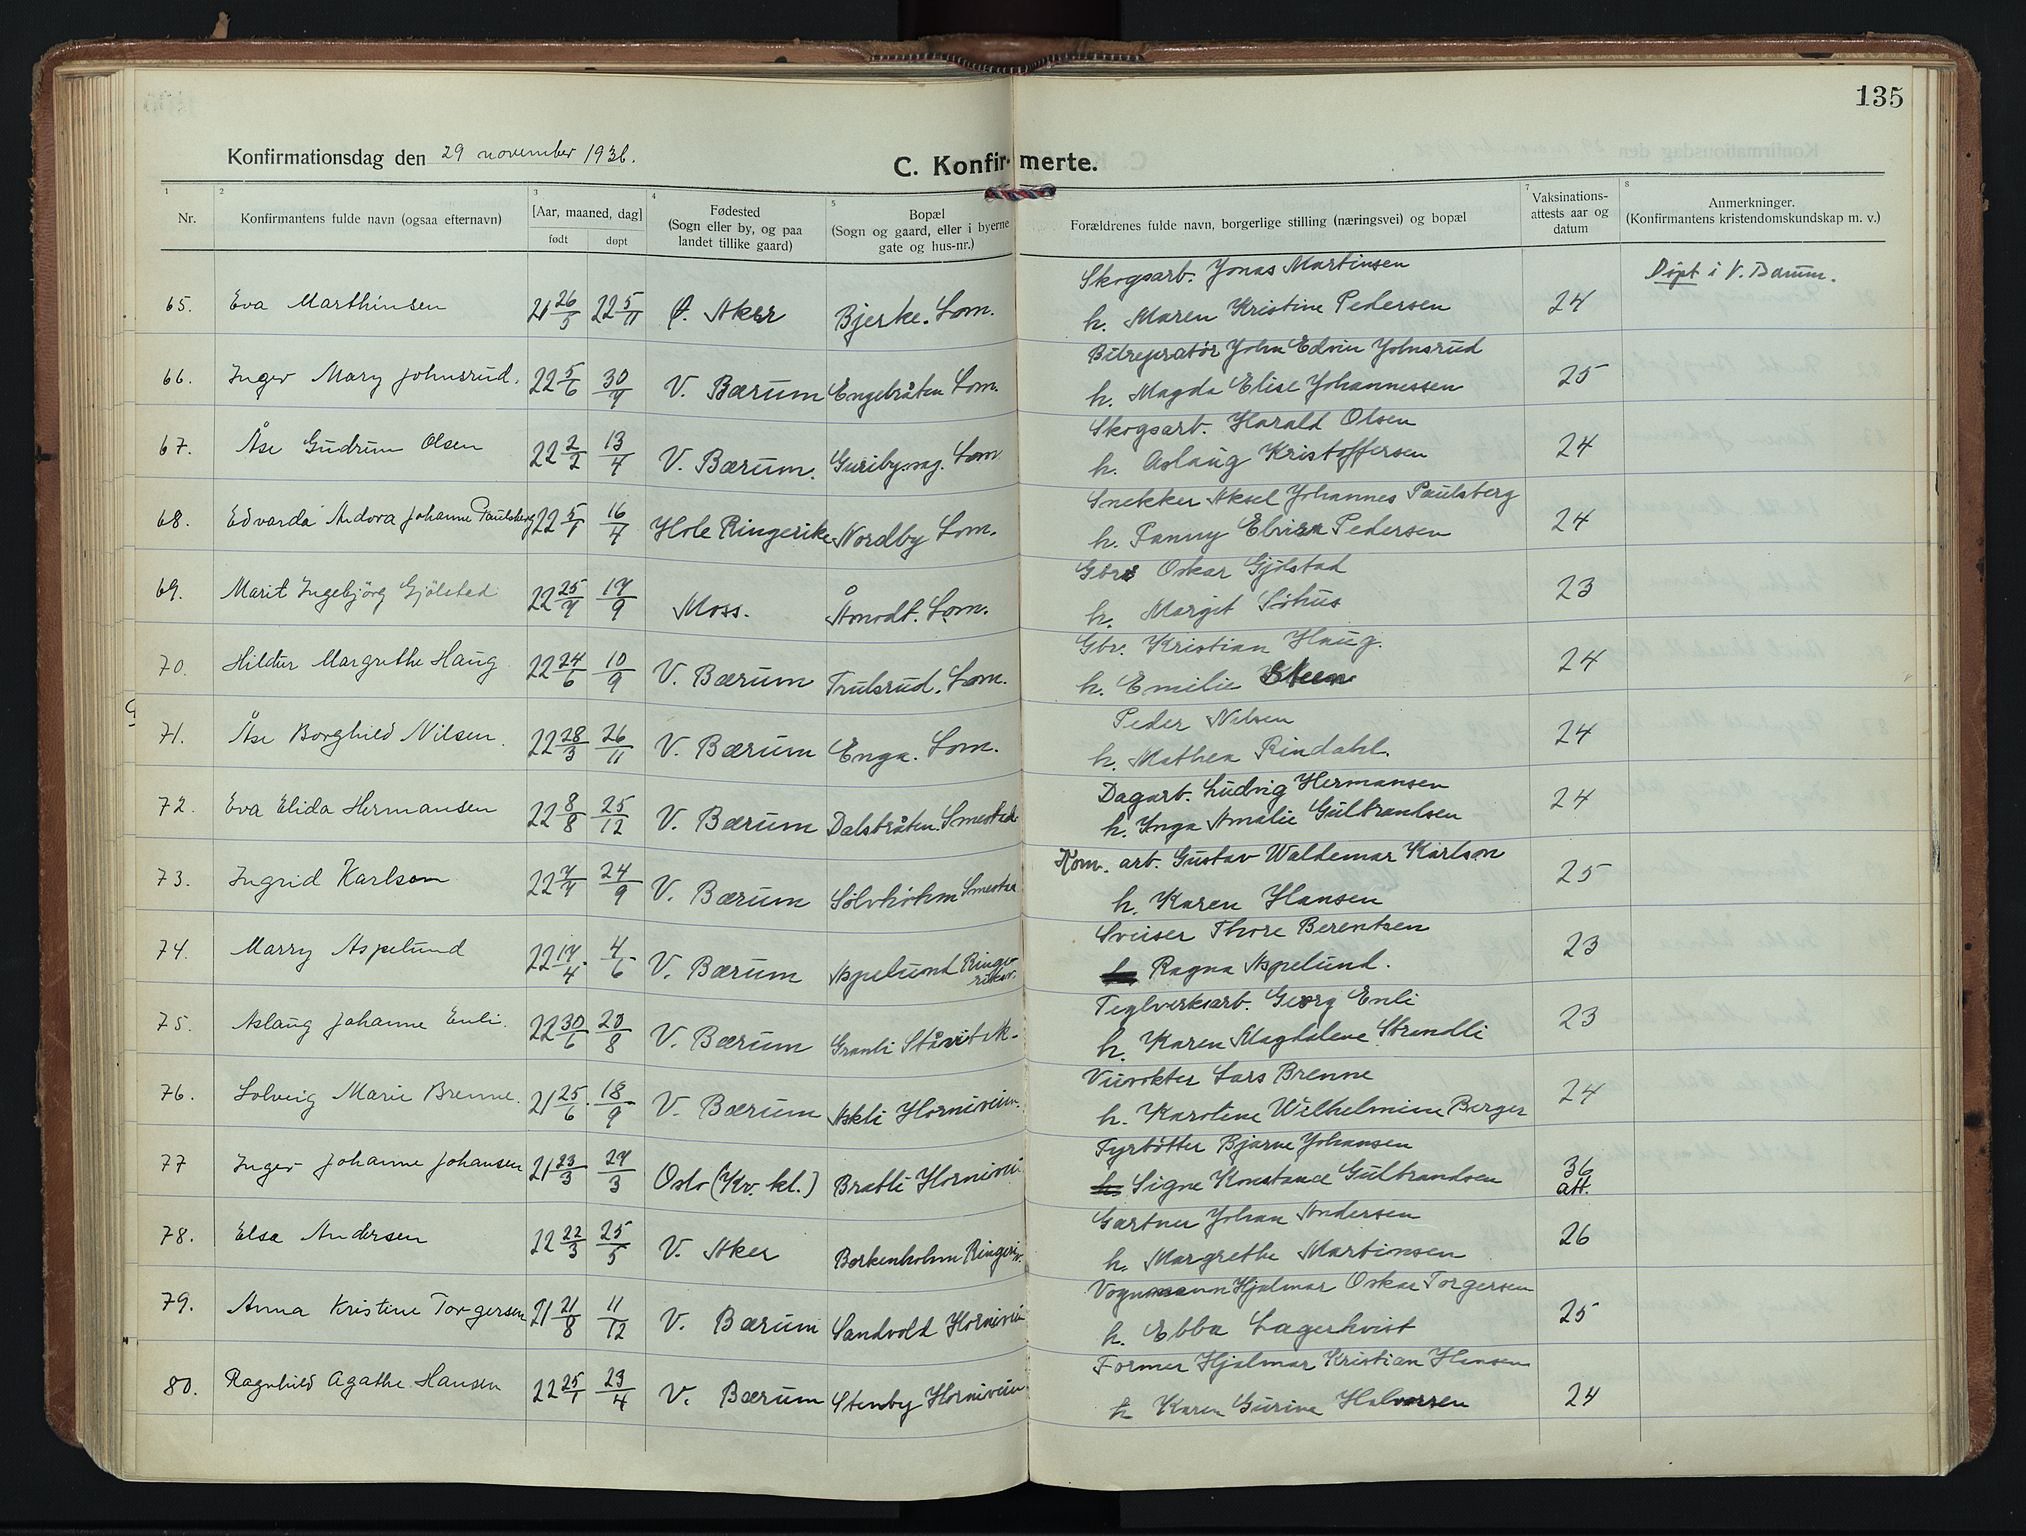 135
Konfirmationsdag den 29 november 1936.
C. Konfirmerte.
1 2 3 4 5 7 8
Nr. Konfirmantens fulde navn (ogsaa efternavn) [Aar, maaned, dag] født døpt Fødested (Sogn eller by, og paa landet tillike gaard) Bopæl (Sogn og gaard, eller i byerne gate og hus-nr.) Forældrenes fulde navn, borgerlige stilling (næringsvei) og bopæl Vaksinations-attests aar og datum Anmerkninger. (Konfirmantens kristendomskundskap m. v.)
Skogsarb. Jonas Martinsen Døpt i V. Bærum.
65. Eva Marthinsen 21 26/5 22 5/11 Ø. Aker Bjerke. Lom. h. Maren Kristine Pedersen 24
Bilreparatør John Edvin Johnsrud
66. Inger Mary Johnsrud. 22 5/6 30/7 V. Bærum Engebråten Lom. h. Magda Elise Johannessen 25
Skogsarb. Harald Olsen
67. Åse Gudrun Olsen 22 2/2 13/4 V. Bærum. Guribymag. Lom h. Aslaug Kristoffersen 24
Snekker Aksel Johannes Paulsberg
68. Edvarda Andora Johanne Paulsberg 22 5/1 16/4 Hole Ringerike Nordby Lom. h. Fanny Elvira Pedersen 24
Gbr. Oskar Gjølstad
69. Marit Ingebjørg Gjølstad 22 25/7 17/9 Moss. Åmodt. Lom. h. Margit Søhus 23
Gbr. Kristian Haug.
70. Hildur Margrethe Haug 22 24/6 10/9 V. Bærum Trulsrud. Lom. h. Emilie Steen 24
Peder Nilsen
71. Åse Borghild Nilsen. 22 28/3 26/11 V. Bærum Enga. Lom. h. Mathea Rindahl. 24
Dagarb. Ludvig Hermansen
72. Eva Elida Hermansen 22 8/8 25/12 V. Bærum Dalsbråten. Smestad h. Inga Amalie Gulbrandsen 24
Kom. arb. Gustav Waldemar Karlson
73. Ingrid Karlsson 22 7/7 24/9 V. Bærum Sølvholm Smestad h. Karen Hansen 25
Sveiser Thore Berentsen
74. Marry Aspelund 22 17/4. 4/6 V. Bærum Aspelund Ringeriksv. Ragna Aspelund. 23
Teglverksarb. Georg Enli
75. Aslaug Johanne Enli. 22 30/6 20/8 V. Bærum Granli Ståvivk. h. Karen Magdalene Strandli 23
Viivokter Lars Brenne
76. Solveig Marie Brenne. 21 25/6. 18/9 V. Bærum Askli Horniveien. h. Karoline Wilhelmine Berger 24
Fyrbøtter Bjarne Johansen
77 Inger Johanne Johansen 21 23/3 27/3 Oslo (Kv. kl.) Bratli Hornivei Signe Konstance Gulbrandsen 36 att.
Gartner Johan Andersen
78. Elsa Andersen 22 22/3 25/5 V. Aker Borkenholm Ringeriv. h. Margrethe Martinsen 26
Vognmann Hjalmar Oskar Torgersen
79. Anna Kristine Torgersen 21 21/8 11/12 V. Bærum Sandvold Hornivei h. Ebba Lagerkvist 25
Former Hjalmar Kristian Hansen
80. Ragnhild Agathe Hansen 22 25/1 23/4 V. Bærum Stenby Horniveien h Karen Gurine Halvorsen 24